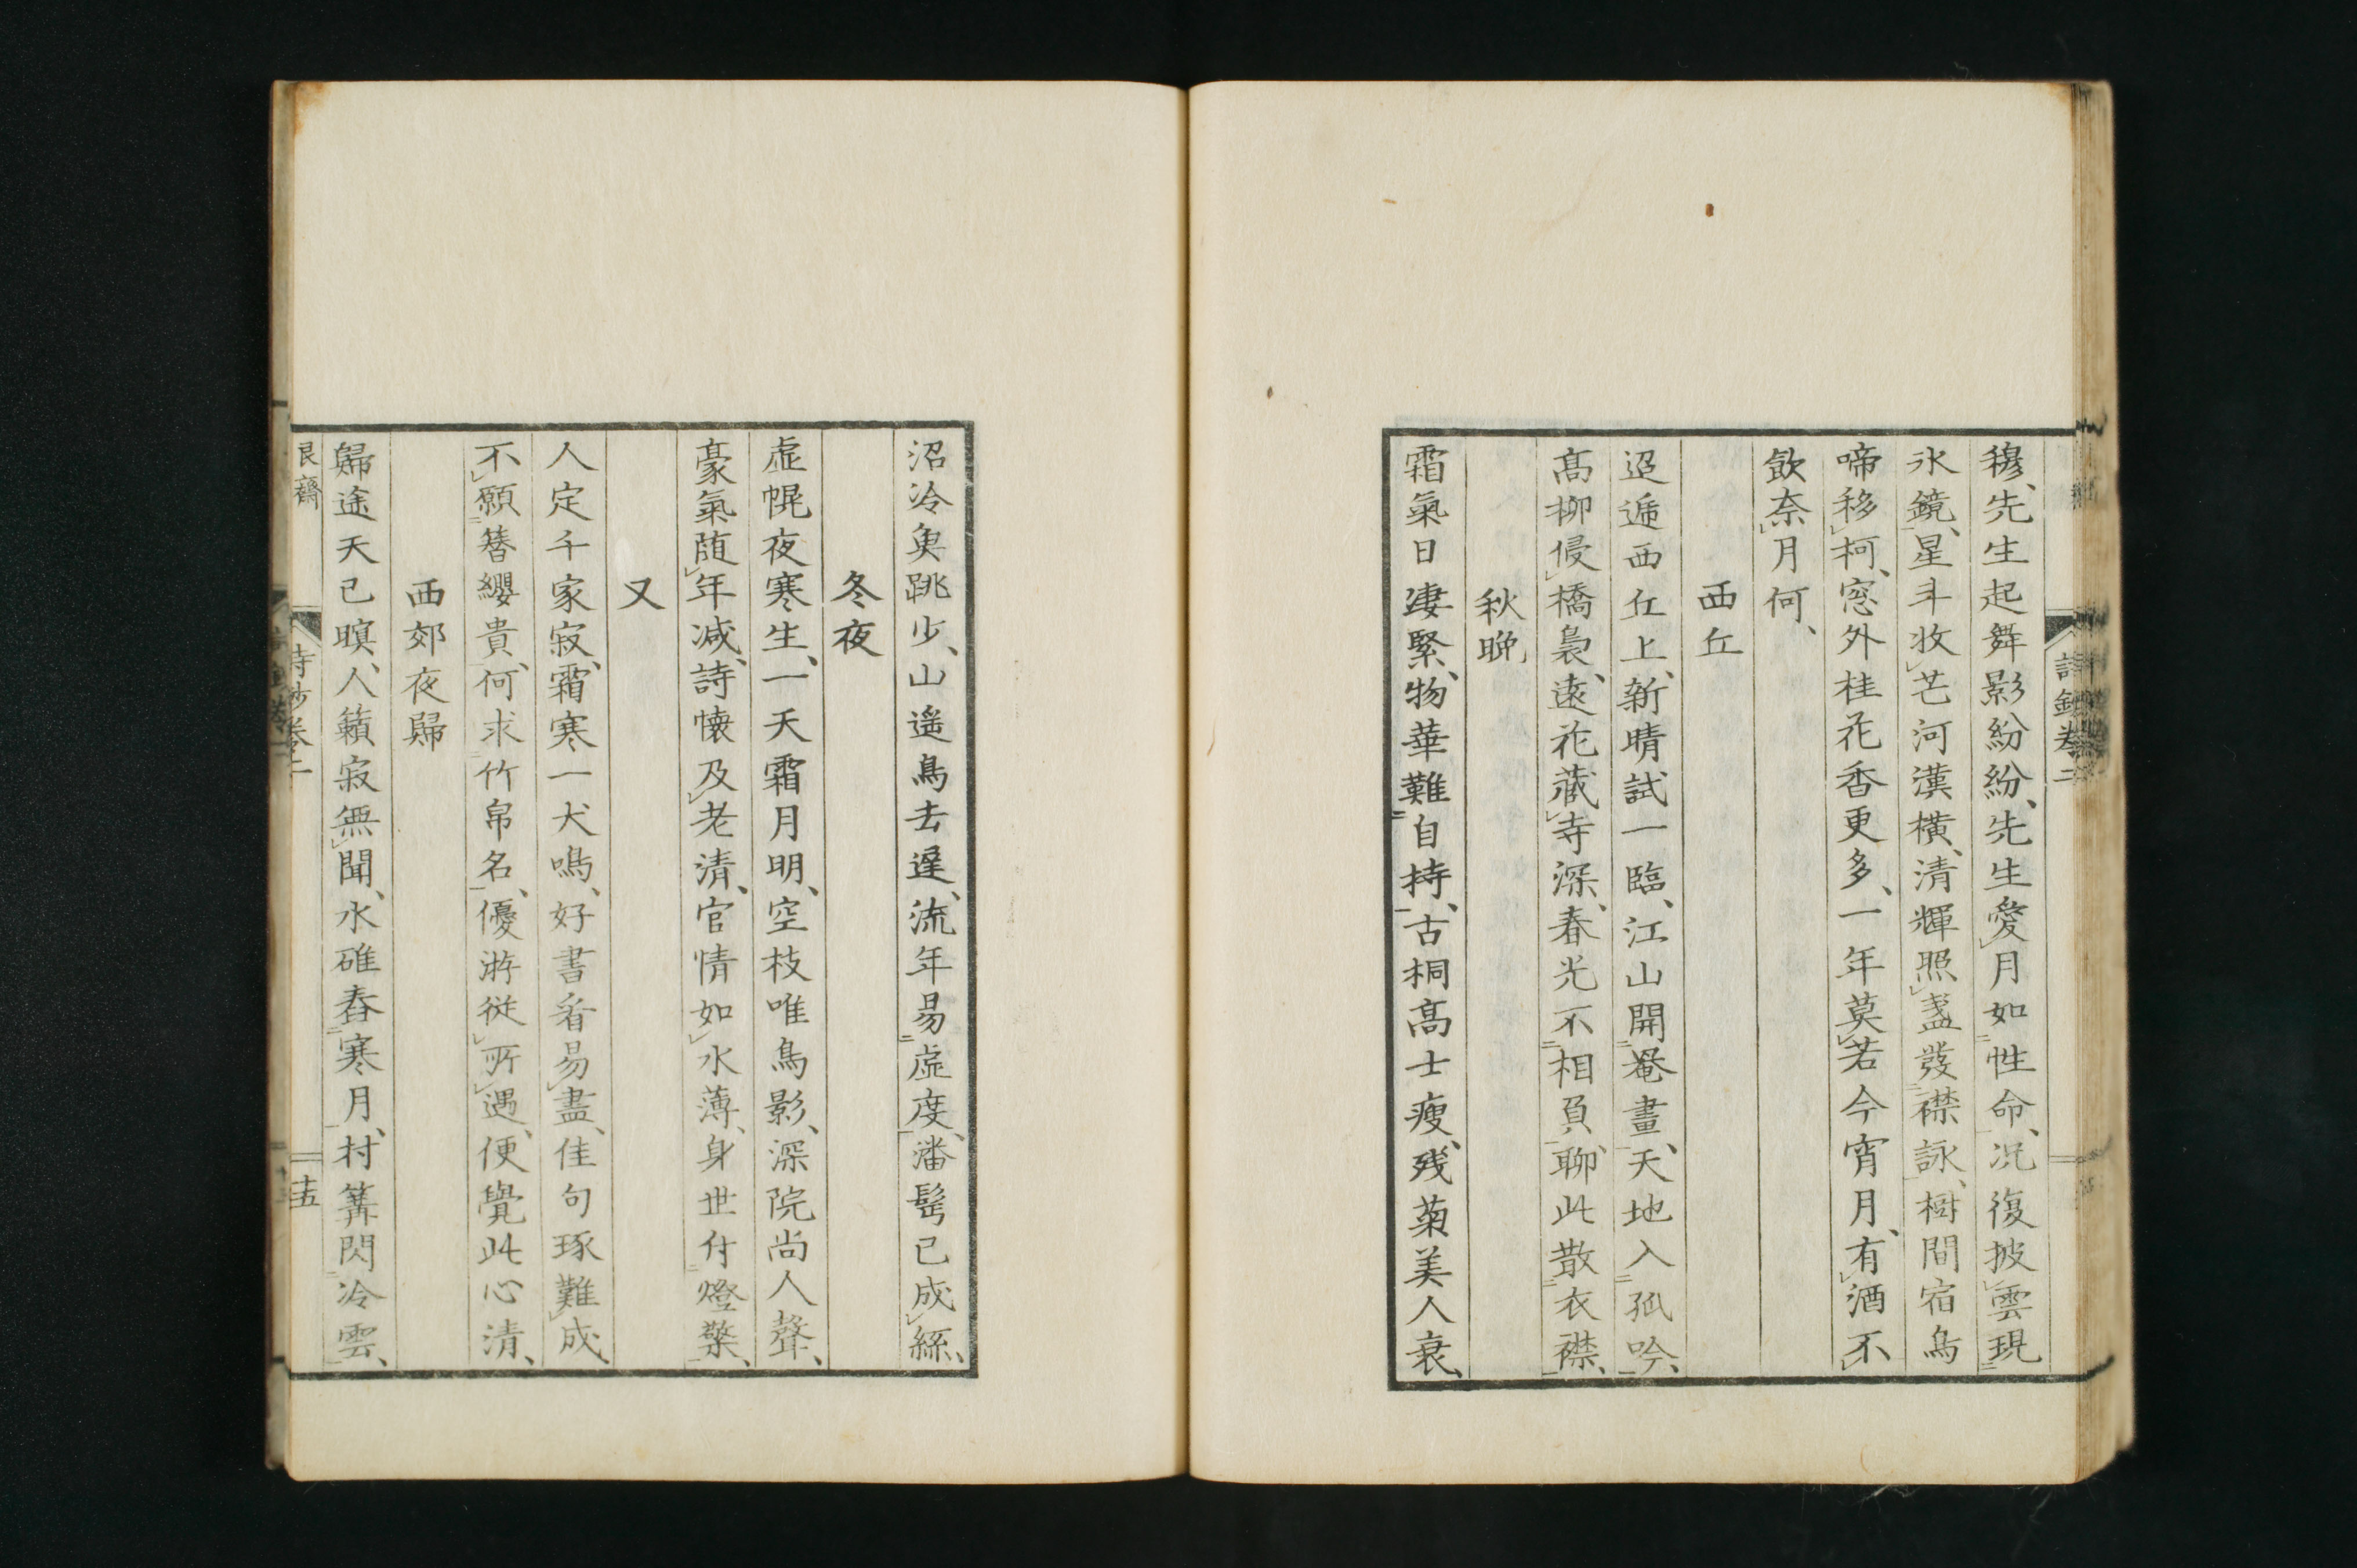 詩鈔卷二
穆、先生起舞影紛紛、先生愛月如性命、况復披雲現
氷鏡、星斗收芒河漢橫、清輝照盞發襟詠、樹間宿鳥
啼移柯、窓外桂花香更多、一年莫若今宵月、有酒不
飲奈月何、
西丘
迢遞西丘上、新晴試一臨、江山開罨畫、天地入孤吟、
高柳侵橋裊、遠花藏寺深、春光不相負、聊此散衣襟、
秋晚
霜氣日凄緊、物華難自持、古桐高士瘦、残菊美人衰、
沼冷魚跳少、山遙鳥去遲、流年易虛度、潘髩已成絲、
冬夜
虛幌夜寒生、一天霜月明、空枝唯鳥影、深院尚人聲、
豪氣随年减、詩懐及老清、官情如水薄、身世付燈檠、
又
人定千家寂、霜寒一犬鳴、好書看易盡、佳句琢難成、
不願簪纓貴、何求竹帛名、優游從所遇、便覺此心清、
西郊夜歸
歸途天已暝、人籟寂無聞、水碓舂寒月、村篝閃冷雲、
艮齋
詩鈔卷二
十五